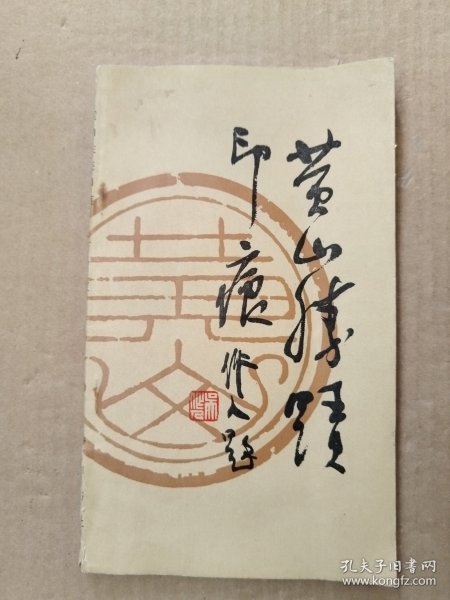 黄山胜蹟
印痕
作人题
孔夫子旧书网
www.kongfz.com